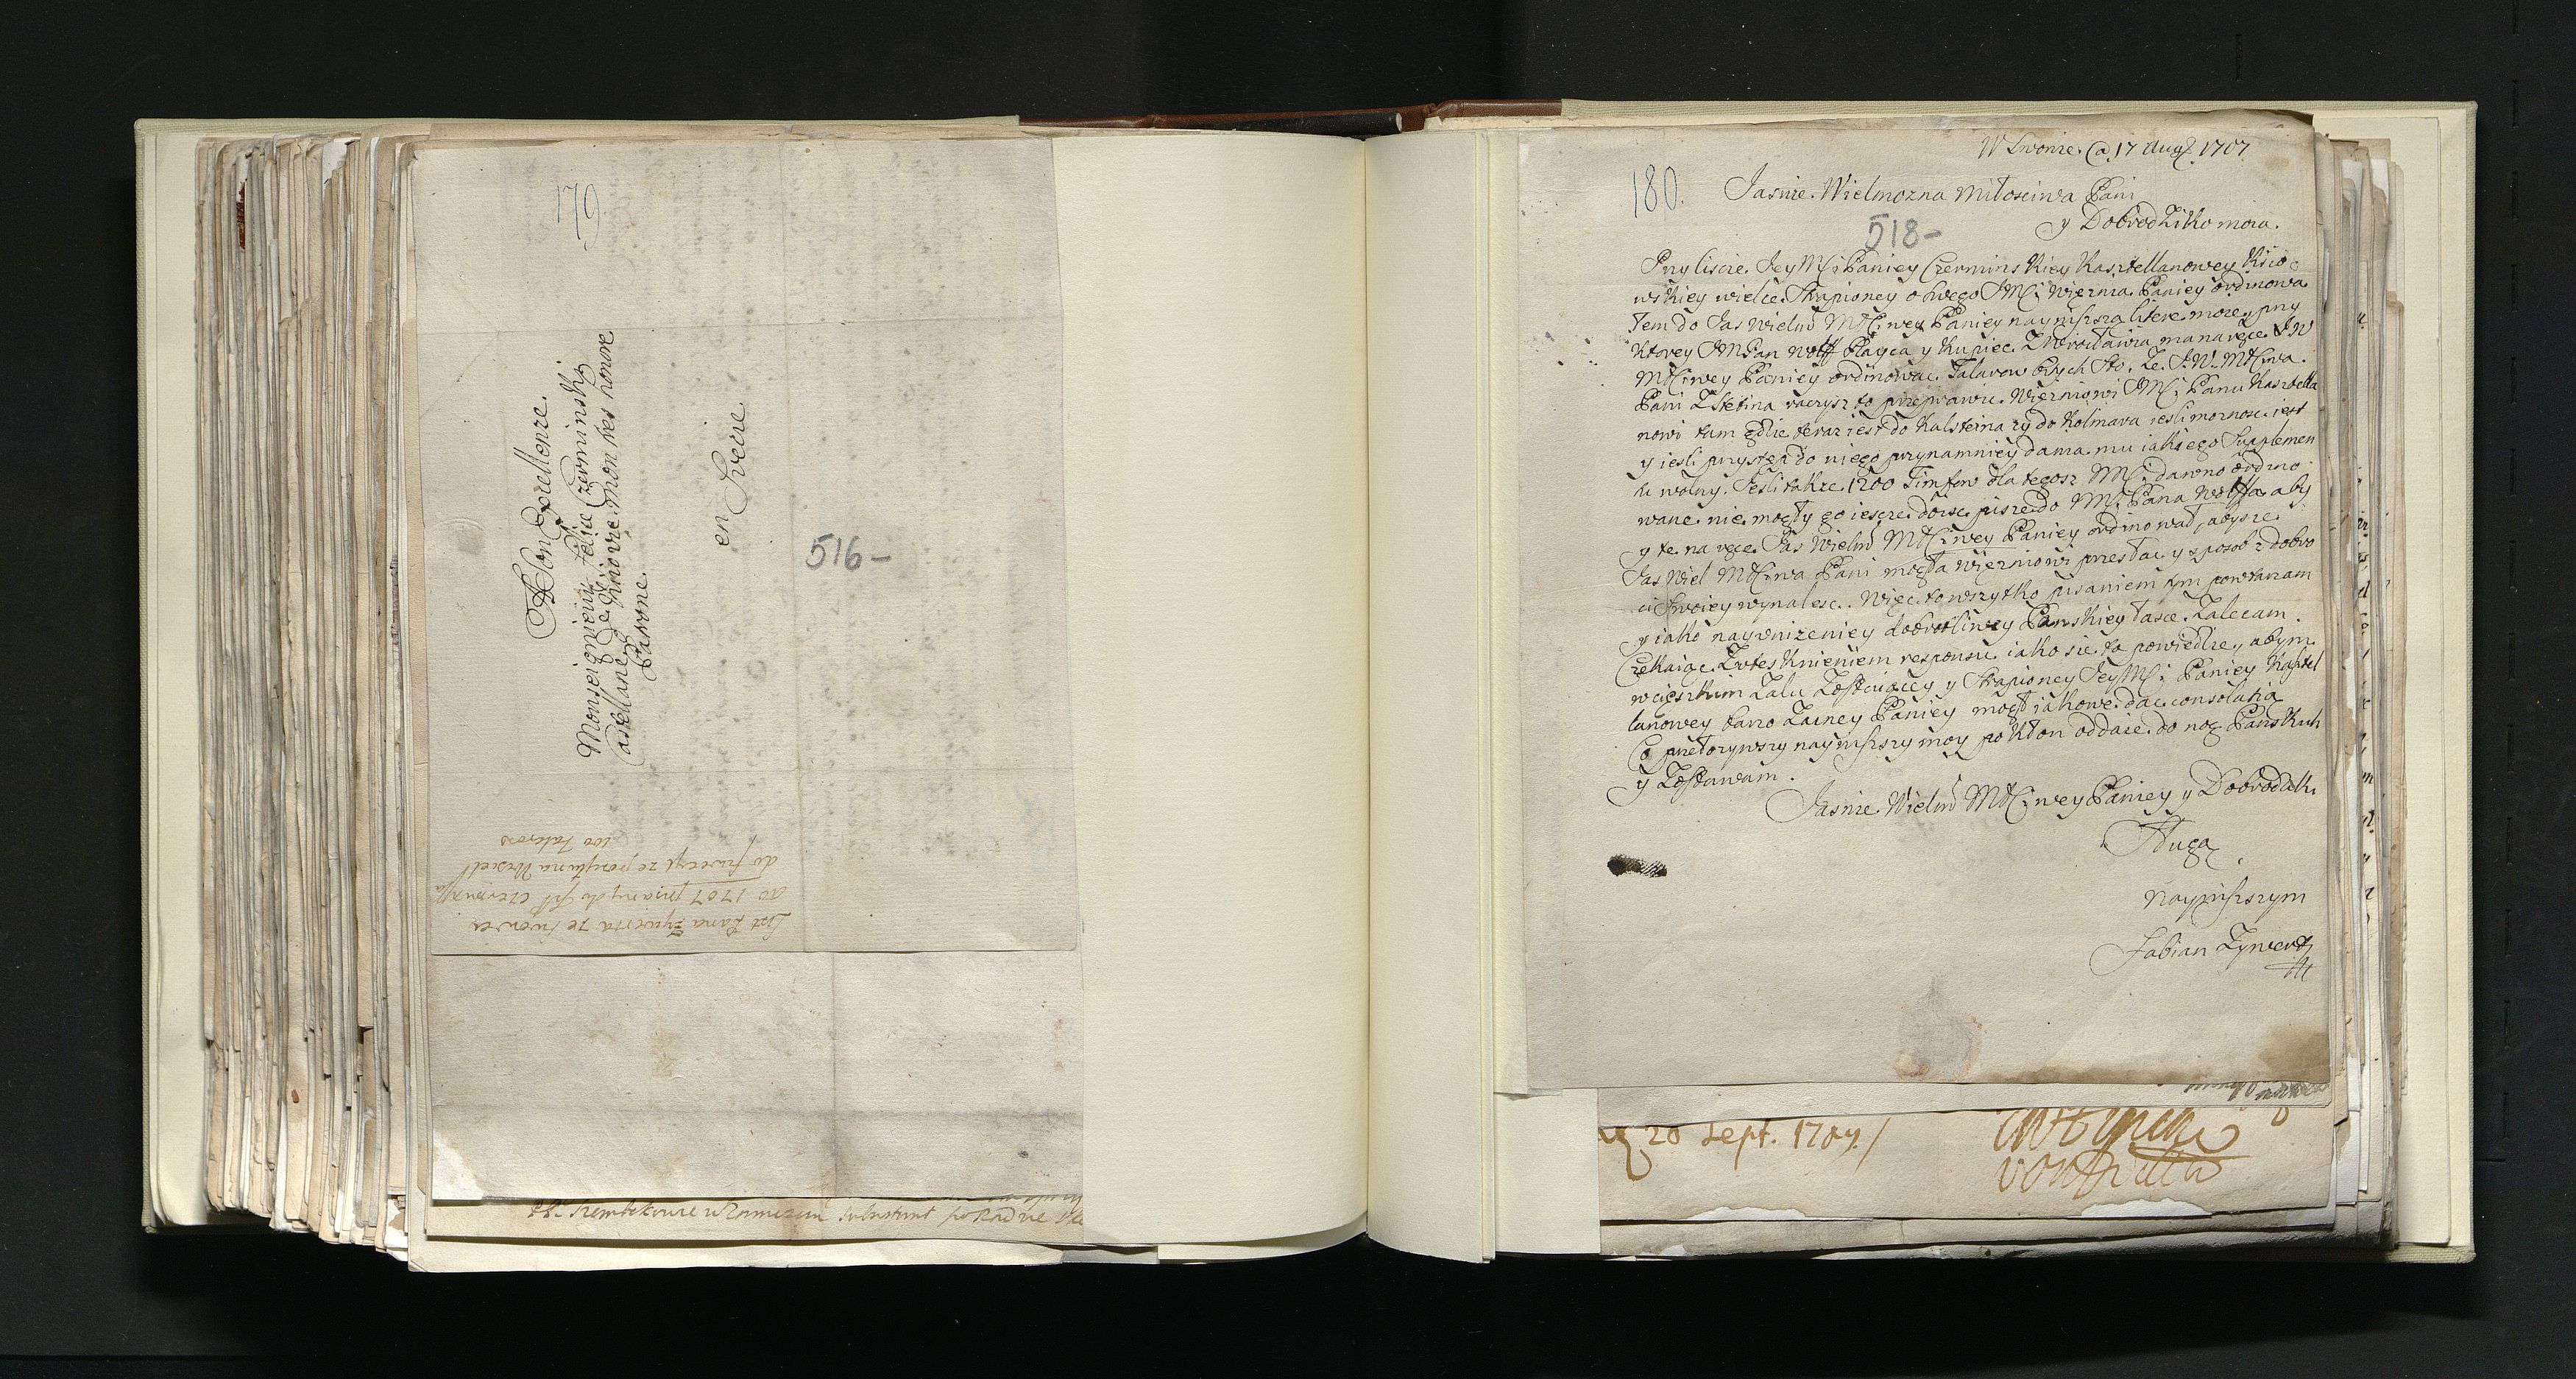 179
A Son Excellence.
Monseigneur Felix Czerminski
Castellane de Kiovie. Mon tres honore
Patrone.
en Svecie.
516-
List Pana Zywerta ze Lwowa
ao 1707 pisany do
do Szwecyi ze posyłana Wexel
100 Talerow
20 Sept. 1707/
W Lwowie. @ 17 Aug 1707
180.
Jasnie. Wielmozna Miłosciwa Pani
y Dobrodziko moia.
518-
Przy liscie. Jey Mći Paniey Czerminskiey Kasztellanowey Kiio
wskiey wielce. Strapioney o swego JMći Więznia. Paniey ordinowa
łem do Jas Wielm Mći wey Paniey naynisszą litere moię, przy
ktorey JMPan Wolff Płatca y Kupiec. Z Wrocławia ma na ręce. JW
Mći wey Paniey ordinowac. Talarow Bitych Sto, Ze. J.W. Mćiwa.
Pani Z Stetina raczysz to przeprawic. Więzniowi JMći Panu Kasztella
nowi tam gdzie teraz iest do Kalsteina zy do Kolmara iesli moznosc iest
y iesli przystęp do niego przynamniey dama mu iakiego Supplemen
tu wolny. Jesli takze. 1200 Timfow dla tegosz Mći dawno ordino
wane. nie. mogły go iescze. dorsc pisze. do Mći Pana Wolffa. aby
y te. na ręce. Jas Wielm Mći wey Paniey ordinował, abysze.
Jas Wiel Mći wa Pani mogła Więzniowi przesłac y sposob z dobro
ci swoiey wynalesc. Więc to wszytko pisaniem tym powtarzam
y iako nayunizeniey dobrotliwey Panskiey łasce. Zalecam.
Czekaiąc. Z utesknieniem responsu. iako sie. to powiedzie, abym.
w cięszkim Zalu Zostaiącey y Strapioney Jey Mći Paniey Kasztel
lanowey bano Zacney Paniey mogł iakowe. dac. consolatią
Co przełozywszy naynisszy moy pokłon oddaie. do nog Panskich
y Zostawam.
Jasnie. Wielm Mći wey Paniey y Dobrodzik.
Sługa
naynisszym
Fabian Zywert